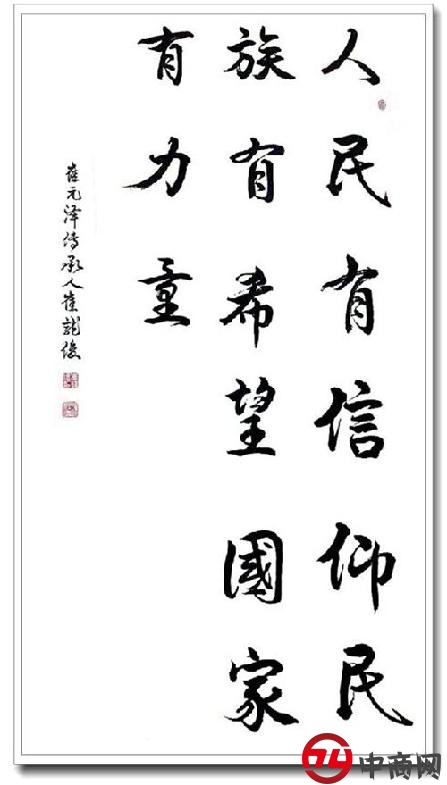 人民有信仰民
族有希望國家
有力量
崔元泽传承人崔龍俊
中商网